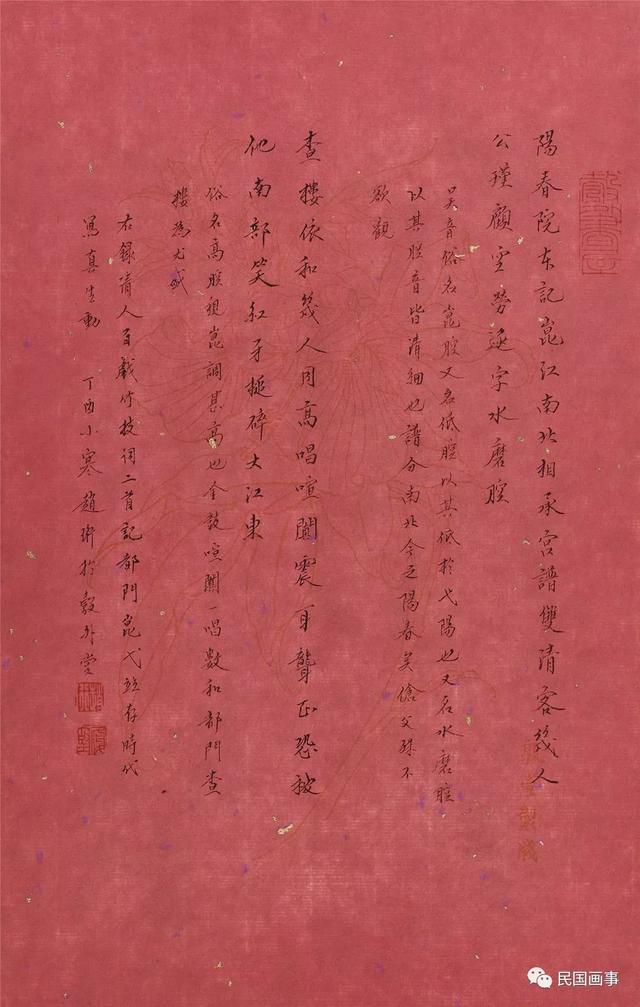 陽春院本記崑江南北相承宮譜雙清客幾人
公瑾顧空勞逐字水磨腔
吳音俗名崑腔又名低腔以其低於弋陽也又名水磨腔
以其腔音皆清細也譜分南北今之陽春矣傖父殊不
欲觀
查樓依和幾人同高唱喧闐震耳聾正恐被
他南部笑紅牙搥碎大江東
俗名高腔視崑調甚高也金鼓喧闐一唱數和都門查
樓為尤盛
右錄清人百戲竹枝詞二首記都門崑弋並存時代
寫真生動
丁酉小寒趙珩於彀外堂
民国画事